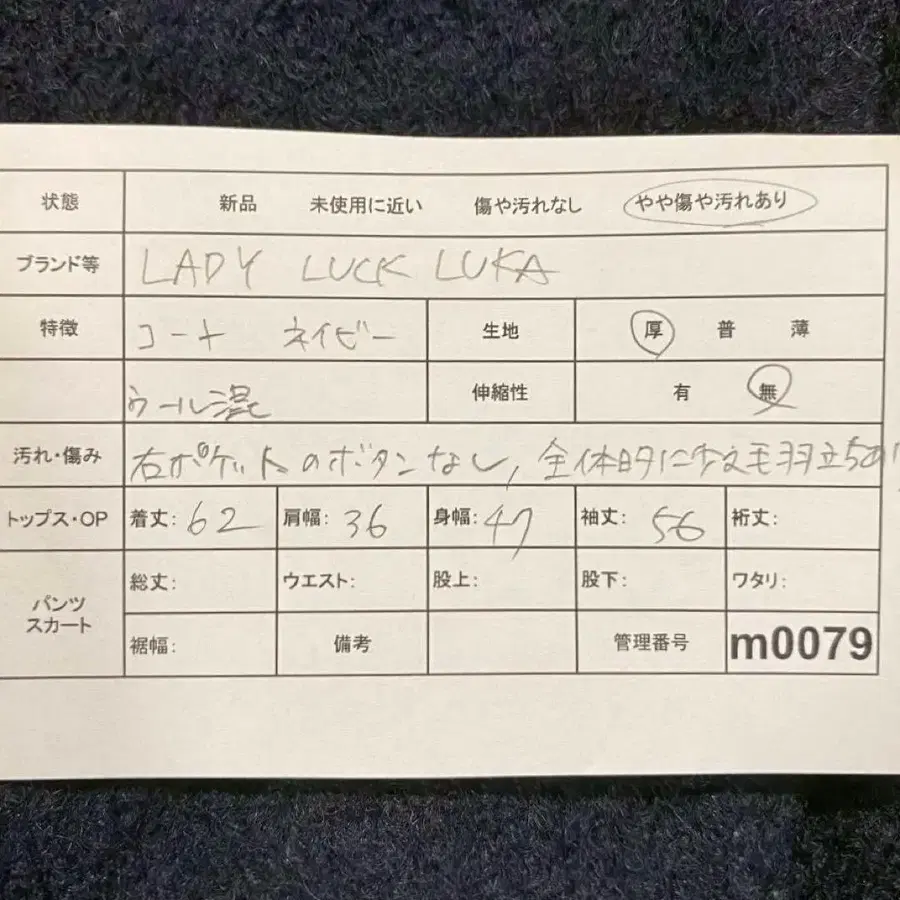 状態 新品 未使用に近い 傷や汚れなし やや傷や汚れあり
ブランド等 LADY LUCK LUKA
特徴 コート ネイビー 生地 厚 普 薄
ウール混 伸縮性 有 無
汚れ・傷み 右ポケットのボタンなし, 全体的に少々毛羽立ちあり
トップス・OP 着丈: 62 肩幅: 36 身幅: 47 袖丈: 56 裄丈:
パンツ スカート 総丈: ウエスト: 股上: 股下: ワタリ:
裾幅: 備考 管理番号 m0079